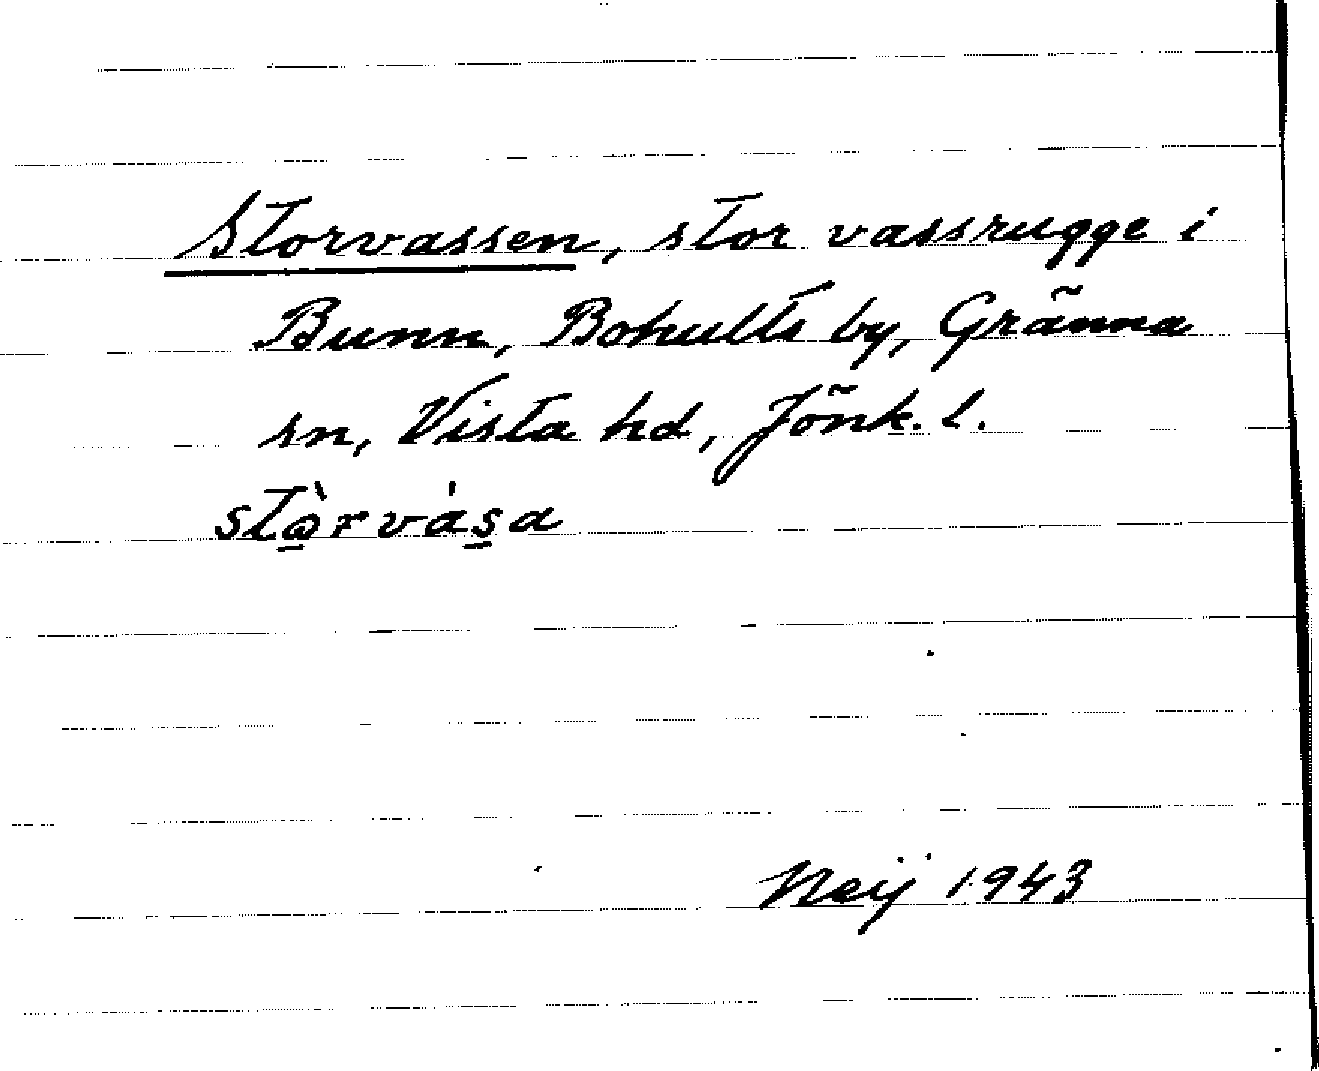 Storvassen, stor vassrugge i
Bunn, Bohults by, Gränna
sn, Vista hd, Jönk. l.
Neij 1943